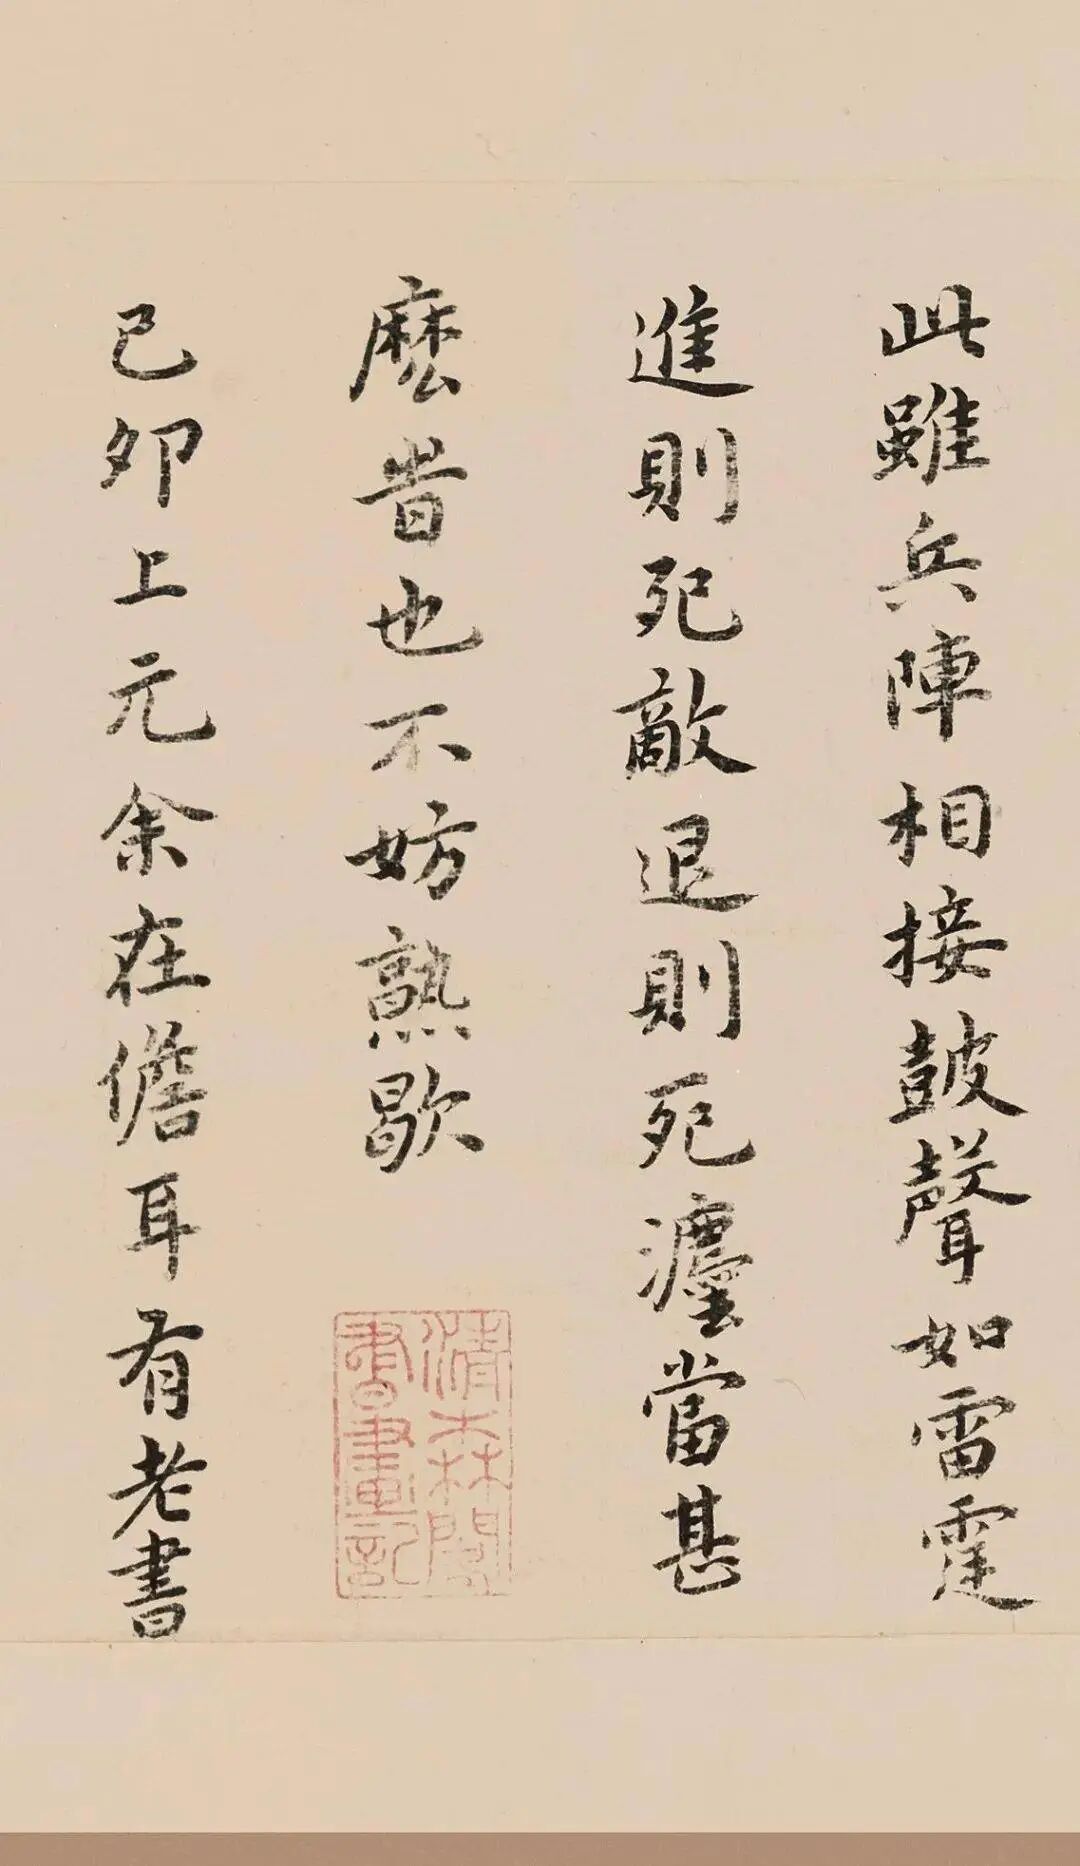 此雖兵陣相接皷聲如雷霆
進則死敵退則死灋當甚
麽旹也不妨熟歇
己卯上元余在儋耳有老書
清森閣
書畫記